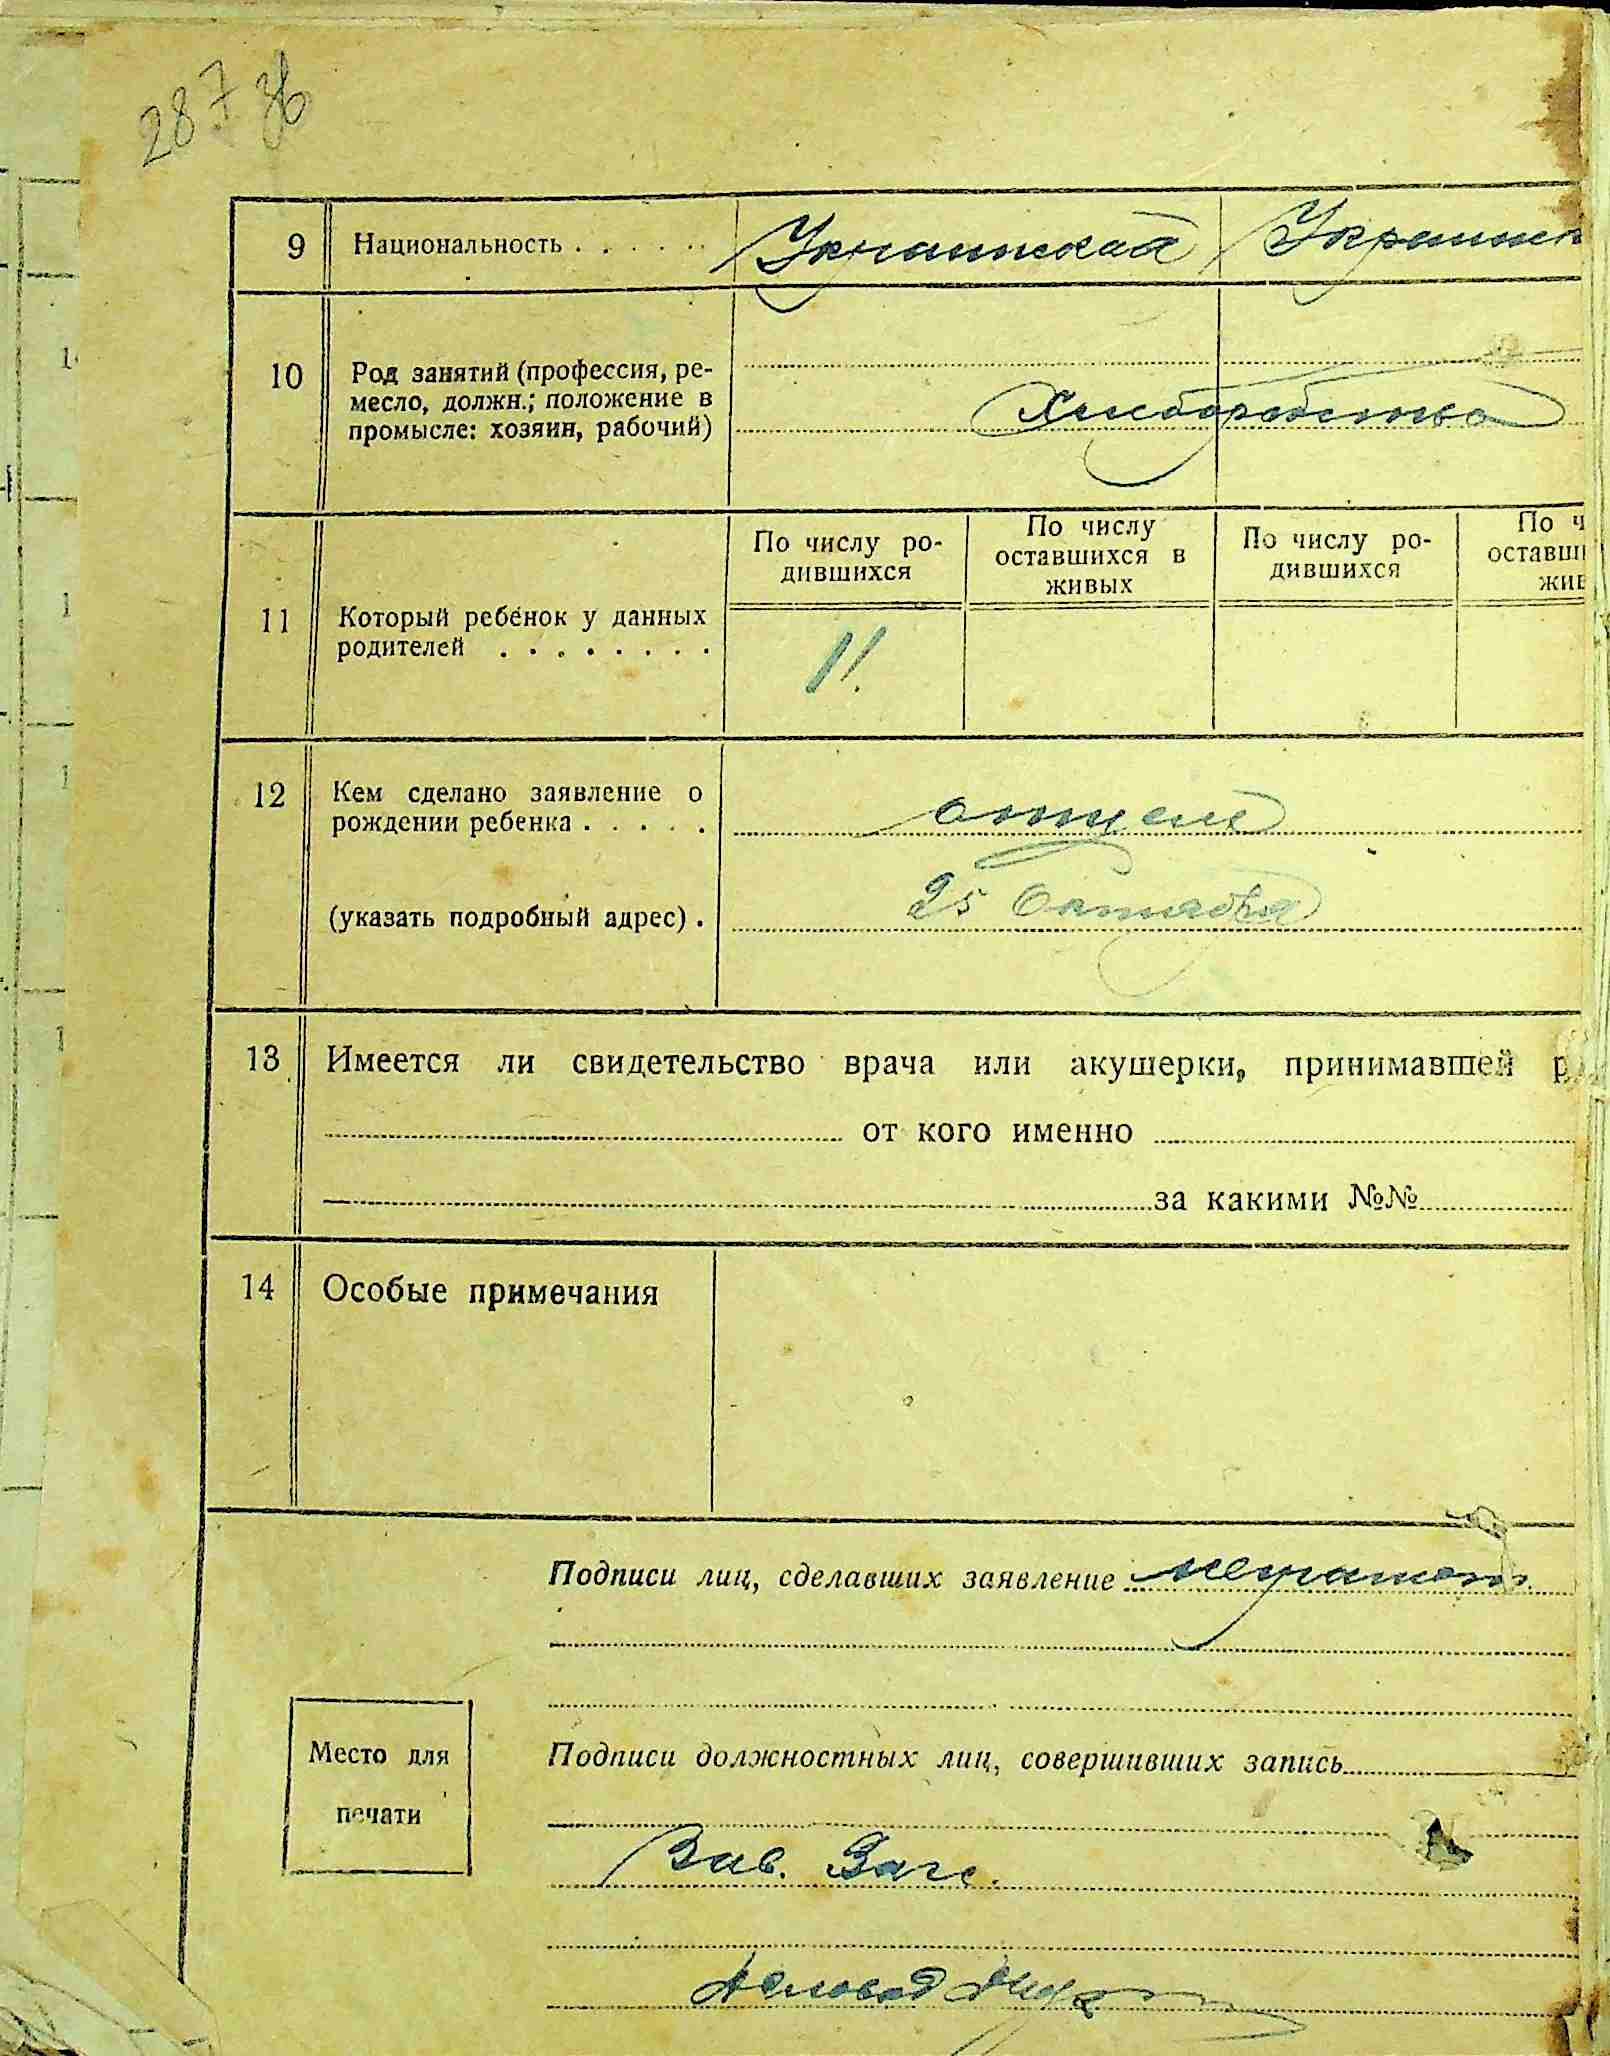 287 зв
9 Национальность . . . . . . Украинская Украинск
10 Род занятий (профессия, ре-
месло, должн.; положение в
промысле: хозяин, рабочий)
Хлеборобство
11 Который ребенок у данных
родителей . . . . . . . .
По числу ро-
дившихся
По числу
оставшихся в
живых
По числу ро-
дившихся
По ч
оставши
жив
11.
12 Кем сделано заявление о
рождении ребенка . . . . .
отцем
(указать подробный адрес) .
25 Октября
13 Имеется ли свидетельство врача или акушерки, принимавшей р
от кого именно
за какими №№
14 Особые примечания
Подписи лиц, сделавших заявление неграмотн
Место для
печати
Подписи должностных лиц, совершивших запись
Зав. Загс.
Деловод